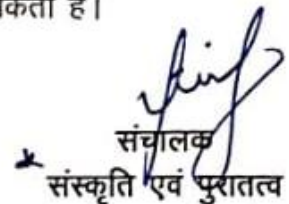 कता है।
संचालक
संस्कृति एवं पुरातत्व